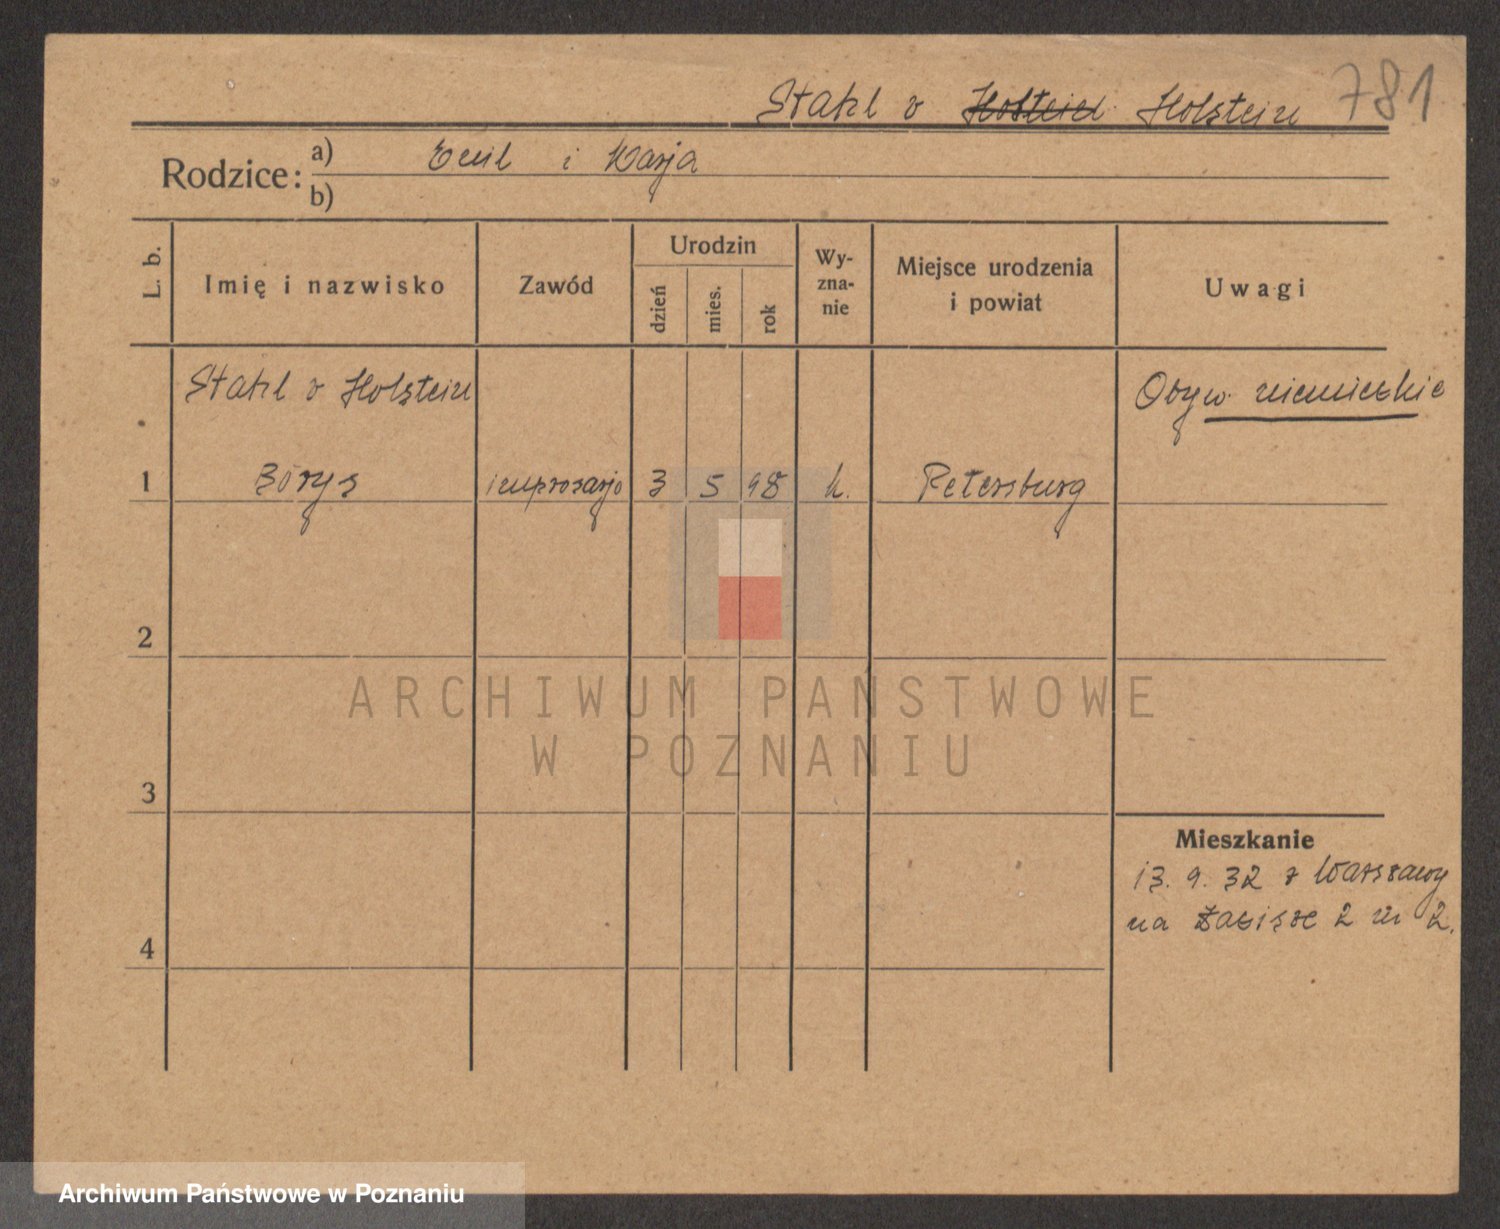 Stahl v Holsteid Holstein 781
Rodzice: a) Emil i Marja
b)
L. b.
Imię i nazwisko
Zawód
Urodzin
dzień
mies.
rok
Wy-
zna-
nie
Miejsce urodzenia
i powiat
Uwagi
Stahl v Holstein
Obyw. niemieckie
1 Borys impresarjo 3 5 98 k. Petersburg
2
ARCHIWUM PAŃSTWOWE
W POZNANIU
3
Mieszkanie
13. 9. 32 z Warszawy
na Zacisze 2 m 2.
4
Archiwum Państwowe w Poznaniu